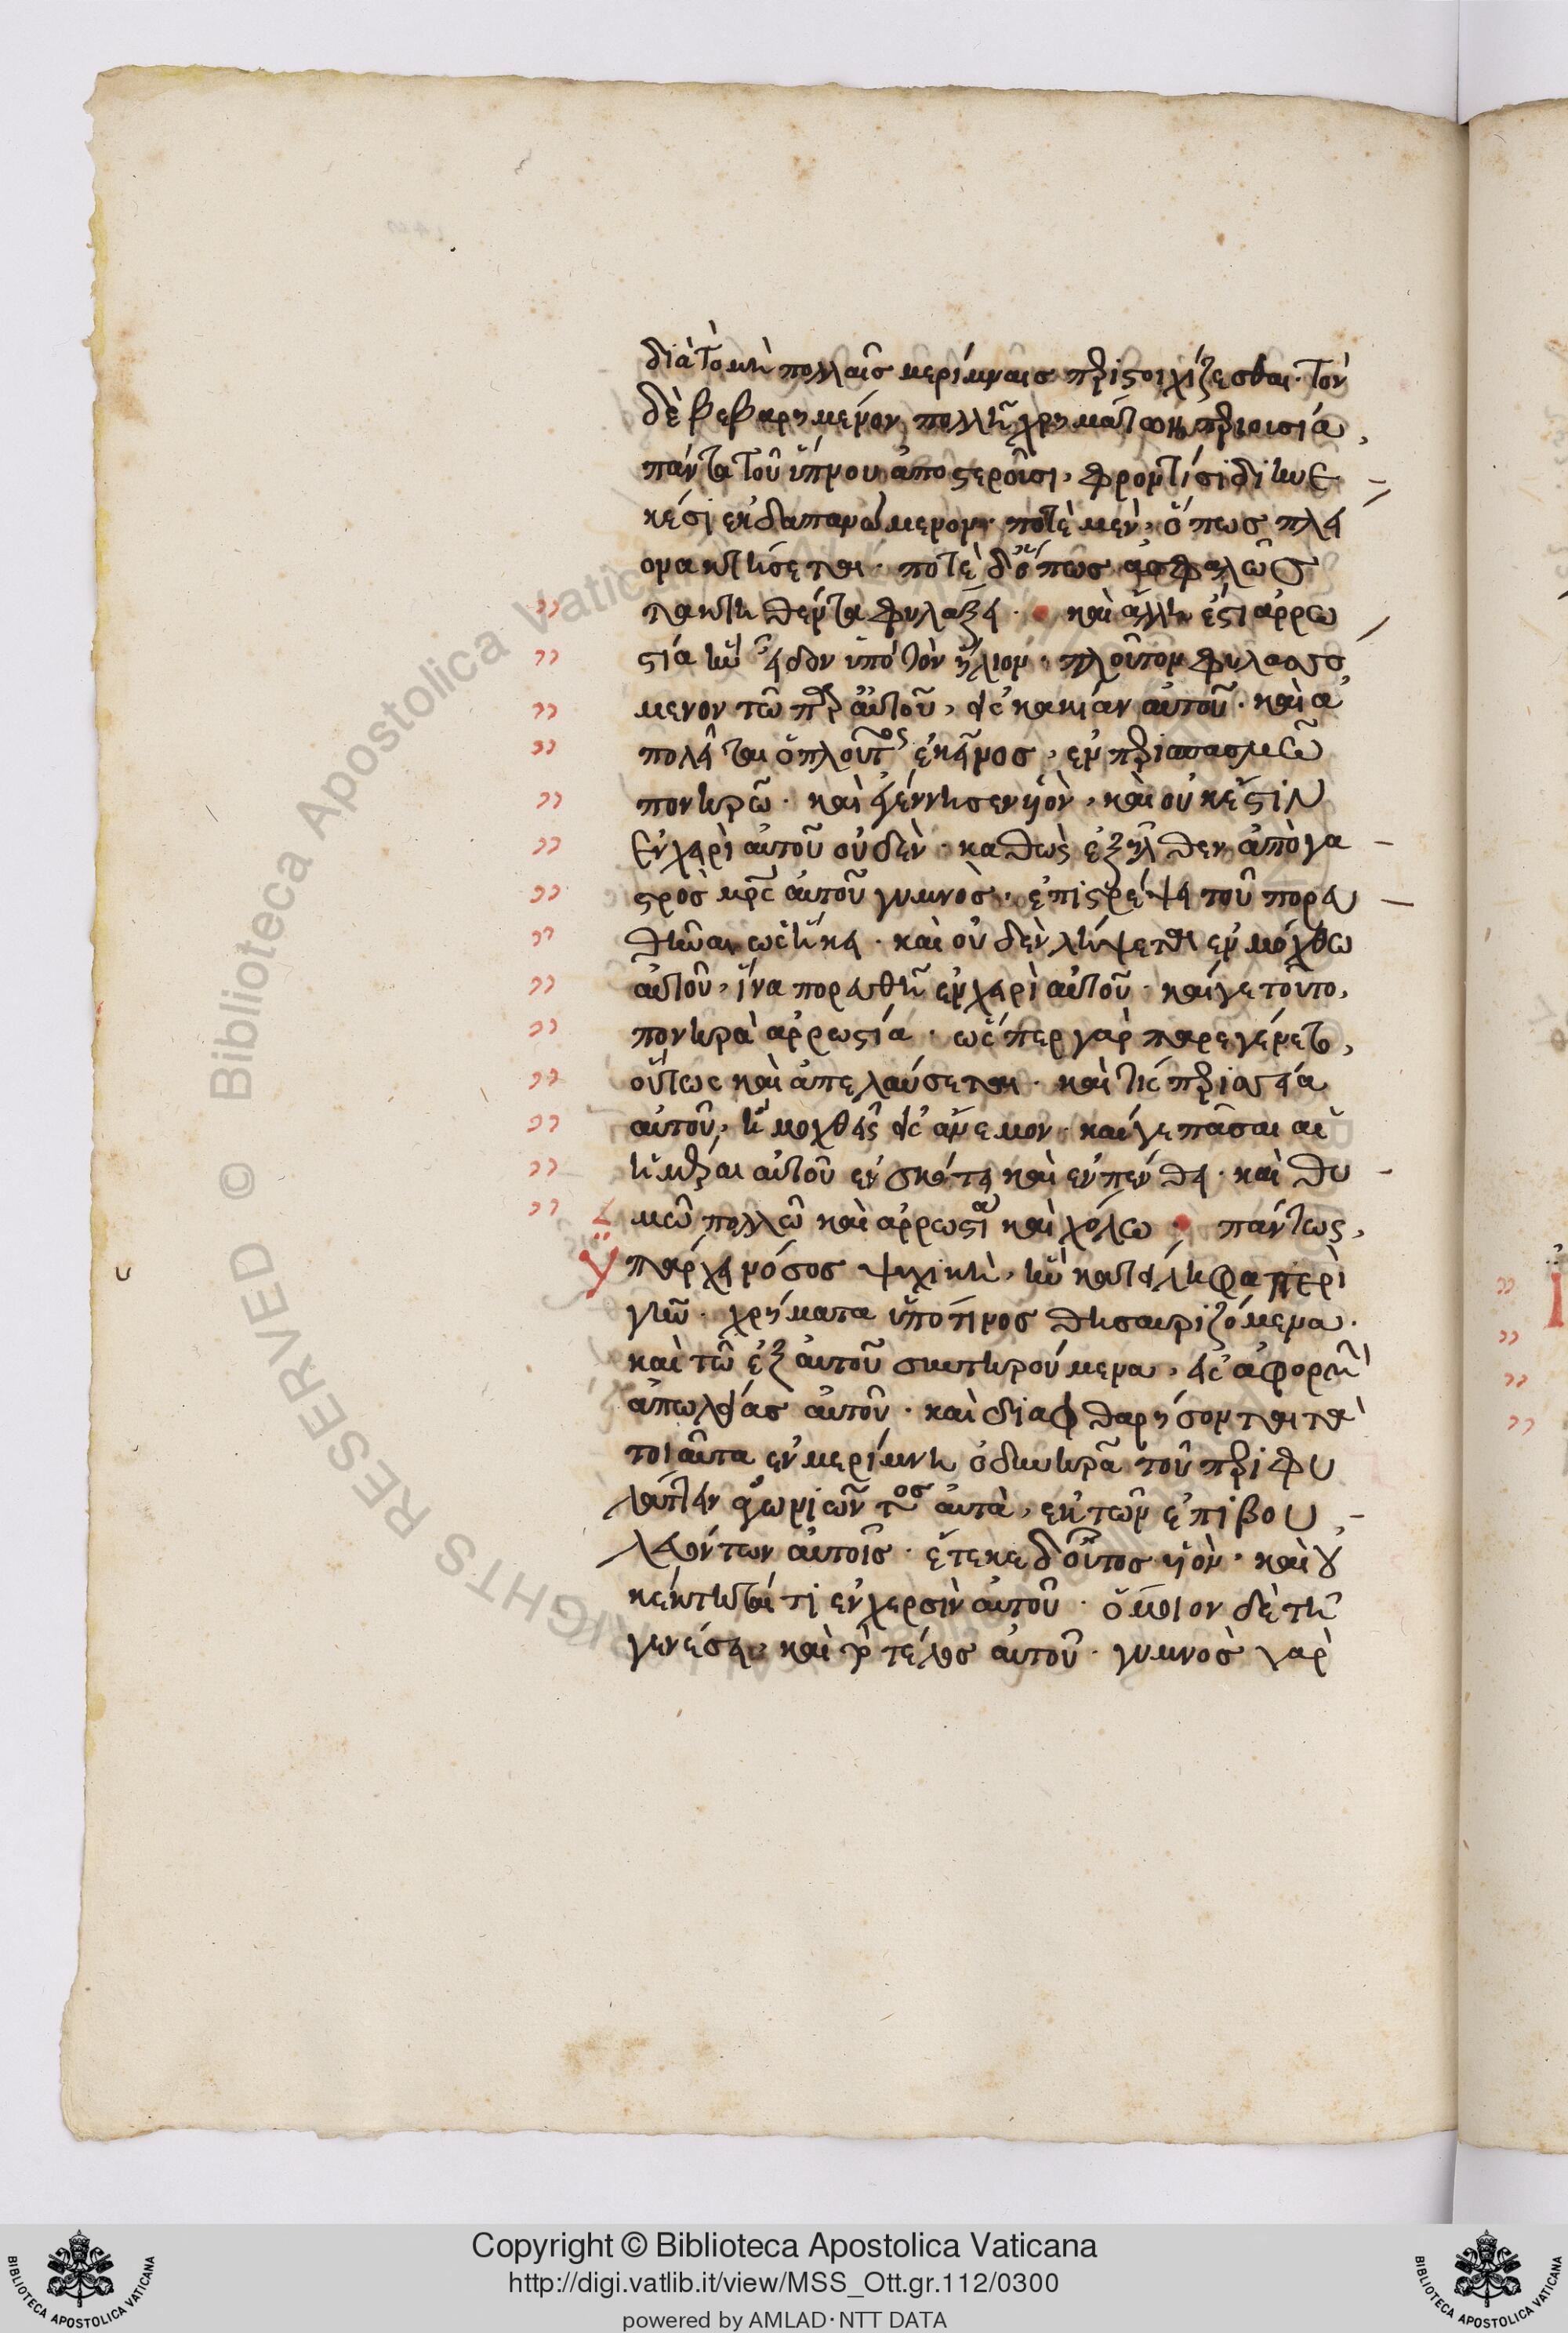 διὰ τὸ μὴ πολλαῖς μερίμναις περιστοιχίζεσθαι· τὸν
δὲ βεβαρημένον πολλῆ χρημάτων περιουσία,
πάντα τοῦ ὕπνου ἀποστεροῦσι, φροντίσι διηνε
κέσι ἐκδαπανώμενον· ποτὲ μὲν, ὅπως πλεί
ονα κτήσεται· ποτὲ δ' ὅπως ἀσφαλῶς
τὰ κτηθέντα φυλάξει· καὶ ἄλλη ἐστὶ ἀρρω
στία ἣν εἶδον ὑπὸ τὸν ἥλιον· πλοῦτον φυλασσό
μενον τῶ παρ' αὐτοῦ, εἰς κακίαν αὐτοῦ· καὶ ἀ
πολεῖται ὁ πλοῦτος ἐκεῖνος, ἐν περισπασμῶ
πονηρῶ· καὶ ἐγέννησεν υἱὸν, καὶ οὐκ ἔστιν
ἐν χειρὶ αὐτοῦ οὐδὲν· καθὼς ἐξῆλθεν ἀπὸ γα
στρὸς μρς αὐτοῦ γυμνὸς· ἐπιστρέψει τοῦ πορευ
θῆναι ὡς ἥκει· καὶ οὐδὲν λήψεται ἐν μόχθω
αὐτοῦ, ἵνα πορευθῆ ἐν χειρὶ αὐτοῦ· καίγε τοῦτο,
πονηρὰ ἀρρωστία· ὥσπερ γὰρ παρεγένετο,
οὕτως καὶ ἀπελεύσεται· καὶ τίς περισσεία
αὐτοῦ, ἣ μοχθεῖ εἰς ἄνεμον· καίγε πᾶσαι αἱ
ἡμέραι αὐτοῦ ἐν σκότει καὶ ἐν πένθει· καὶ θυ
μῶ πολλῶ καὶ ἀρρωστία καὶ χόλω· πάντως,
ὑπάρχει νόσος ψυχικὴ, ἣν κατείληφα περὶ
γῆν· χρήματα ὑπό τινος θησαυριζόμενα.
καὶ τῶ ἐξ αὐτοῦ συντηρούμενα, εἰς ἀφορμὴν
ἀπωλείας αὐτοῦ· καὶ διαφθαρήσονται τὰ
τοιαῦτα ἐν μερίμνη ὀδυνηρᾶ τοῦ περιφυ
λάττειν ἀγωνιῶντος αὐτὰ, ἐκ τῶν ἐπιβου
λευόντων αὐτοῖς· ἔτεκε δ' οὗτος υἱὸν· καὶ οὐ
κέκτηταί τι ἐν χερσὶν αὐτοῦ· ὅμοιον δὲ τῆ
γενέσει καὶ τὸ τέλος αὐτοῦ· γυμνὸς γὰρ
Copyright © Biblioteca Apostolica Vaticana
http://digi.vatlib.it/view/MSS_Ott.gr.112/0300
powered by AMLAD·NTT DATA